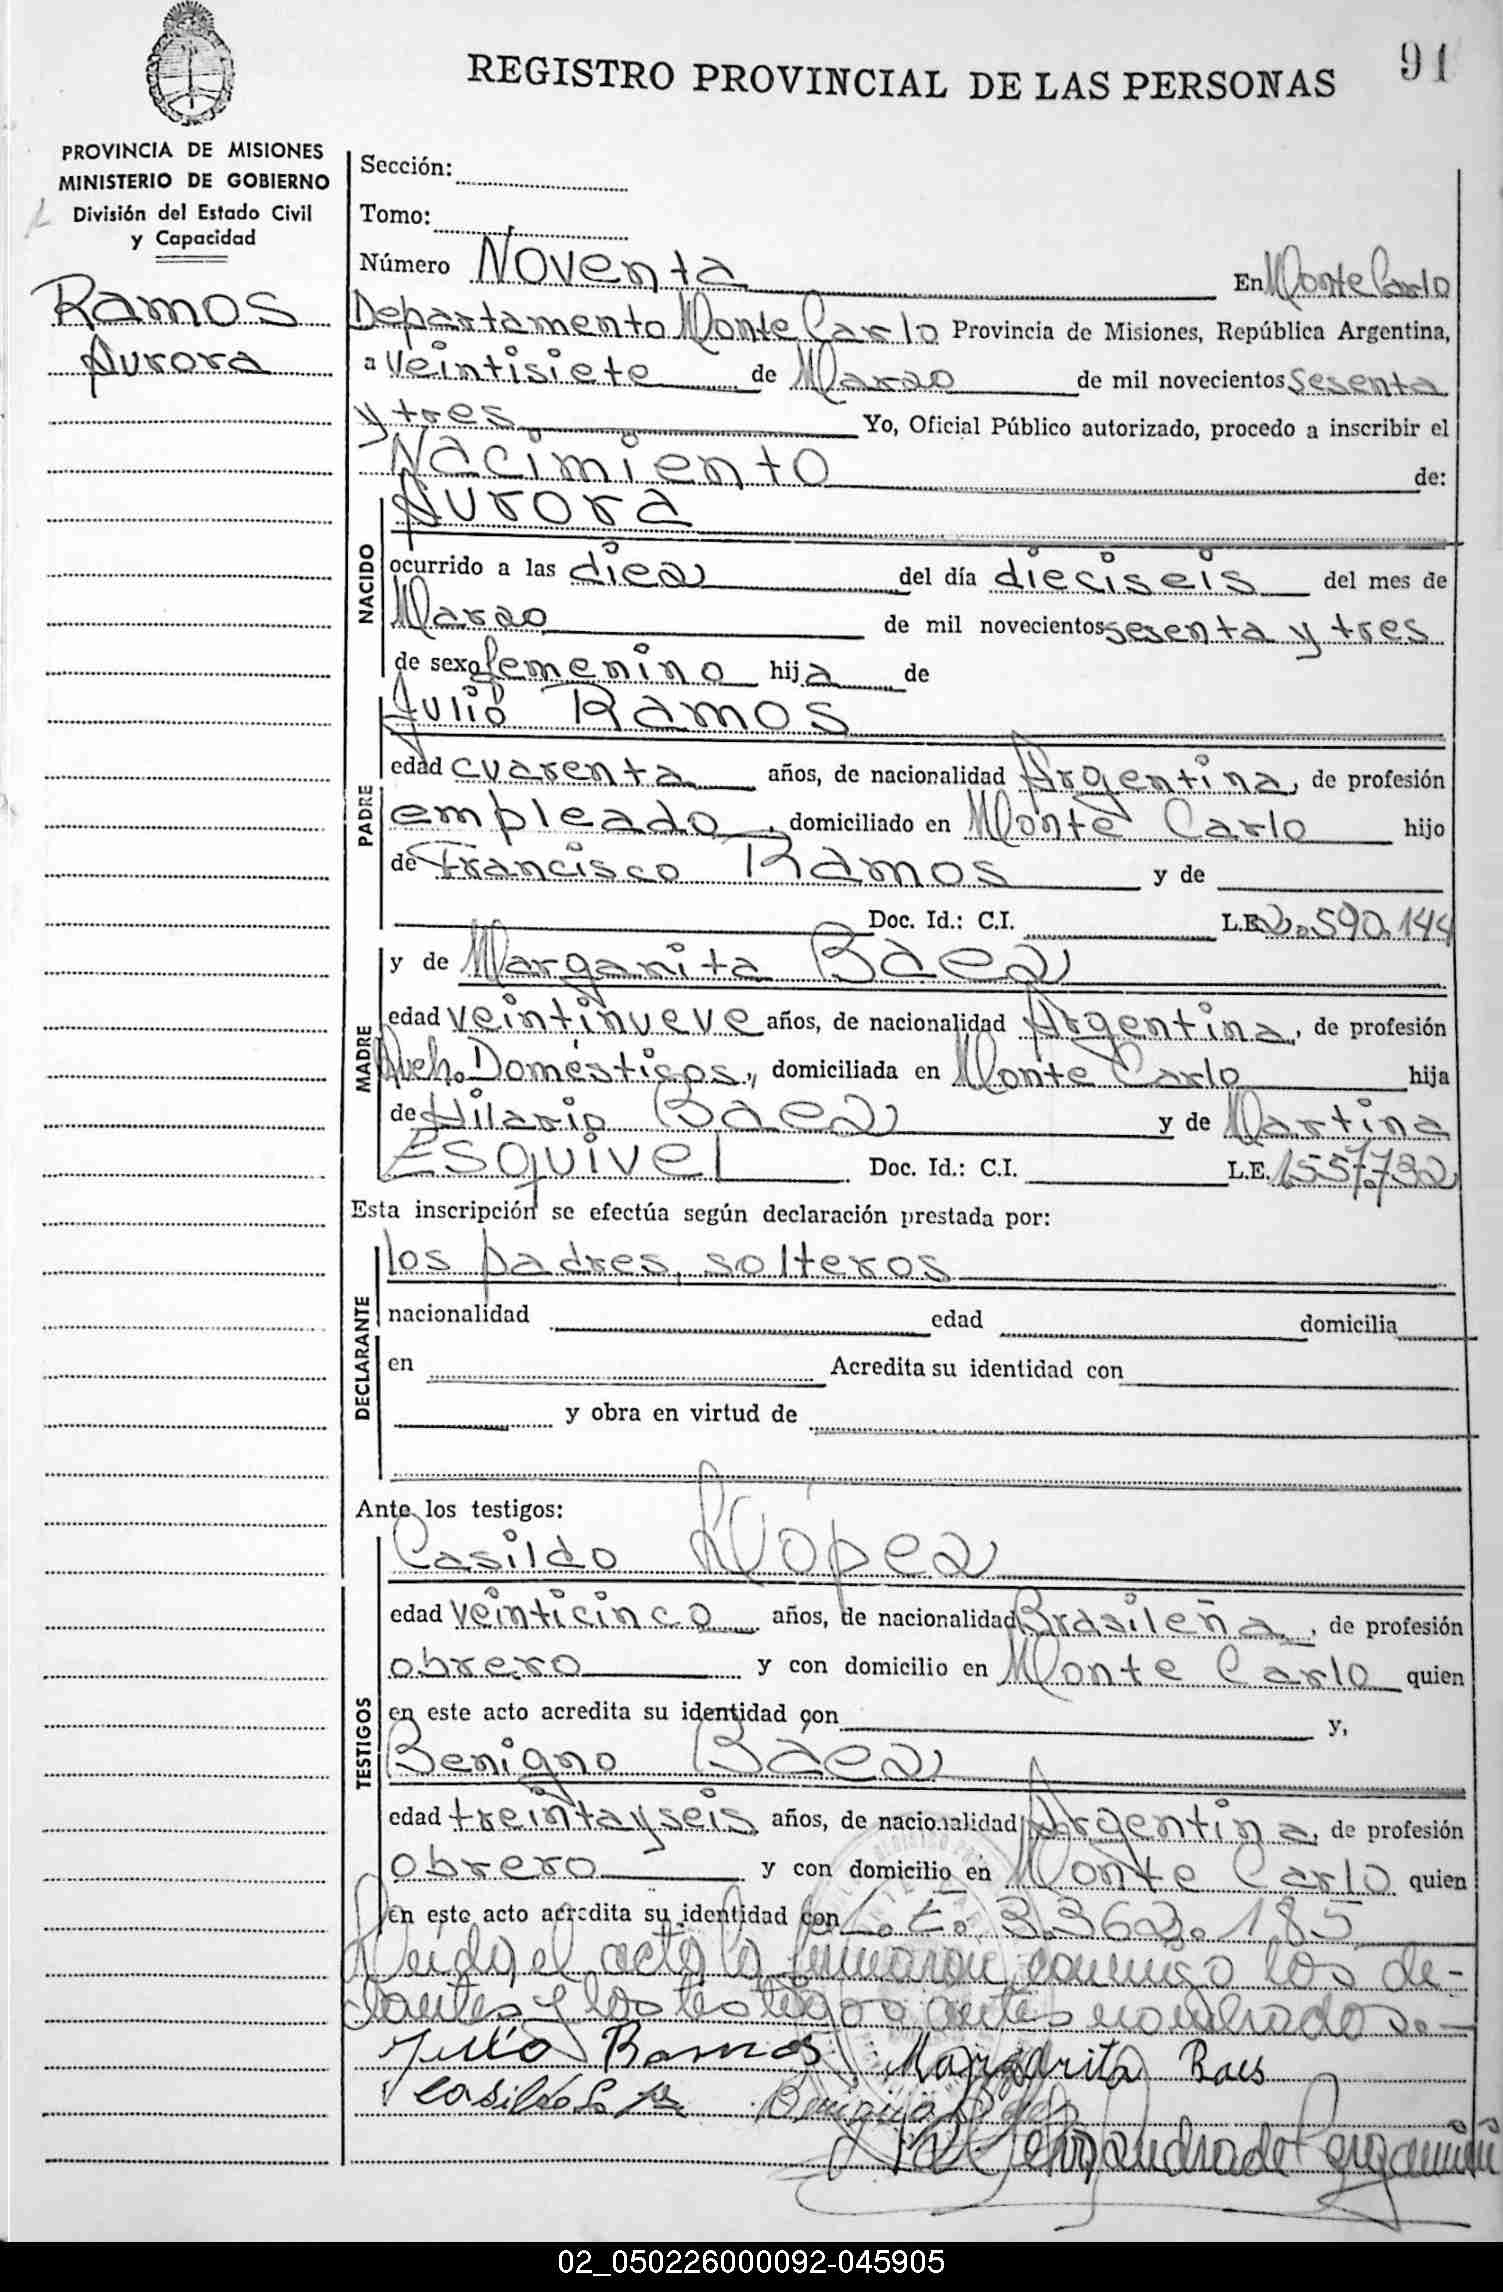 REGISTRO PROVINCIAL DE LAS PERSONAS
91
PROVINCIA DE MISIONES
MINISTERIO DE GOBIERNO
División del Estado Civil
y Capacidad
Ramos
Aurora
Sección:
Tomo:
Número Noventa En Monte Carlo
Departamento Monte Carlo Provincia de Misiones, República Argentina,
a veintisiete de Marzo de mil novecientos sesenta
y tres Yo, Oficial Público autorizado, procedo a inscribir el
Nacimiento de:
Aurora
NACIDO
ocurrido a las diez del día dieciseis del mes de
Marzo de mil novecientos sesenta y tres
de sexo femenino hija de
Julio Ramos
PADRE
edad cuarenta años, de nacionalidad Argentina, de profesión
empleado, domiciliado en Monte Carlo hijo
de Francisco Ramos y de
Doc. Id.: C.I. L.E. 2.590.144
y de Marganita Baez
MADRE
edad veintinueve años, de nacionalidad Argentina, de profesión
Domésticos, domiciliada en Monte Carlo hija
de Hilario Baez y de Martina
Esquivel Doc. Id.: C.I. L.E. 1.557.732
Esta inscripción se efectúa según declaración prestada por:
los padres, solteros
DECLARANTE
nacionalidad edad domicilia
en Acredita su identidad con
y obra en virtud de
Ante los testigos:
Casildo Lopez
TESTIGOS
edad veinticinco años, de nacionalidad Brasileña, de profesión
obrero y con domicilio en Monte Carlo quien
en este acto acredita su identidad con y,
Benigno Baez
edad treinta y seis años, de nacionalidad Argentina, de profesión
obrero y con domicilio en Monte Carlo quien
en este acto acredita su identidad con L.E. 3.362.185
Leida el acta la firmaron conmigo los de-
clantes y los testigos antes nombrados.-
Julio Ramos Margarita Baes
Casildo Benigno
02_050226000092-045905